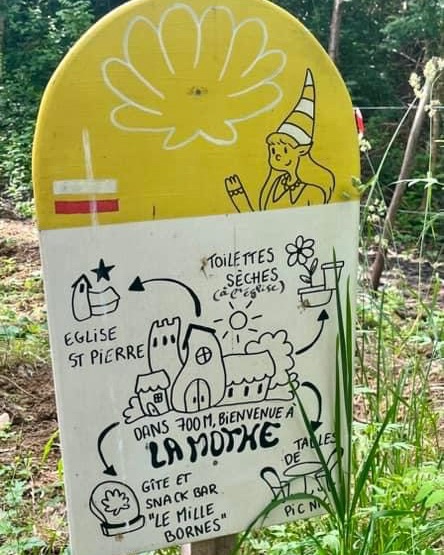 TOILETTES
SÈCHES
(à l'église)
EGLISE
ST PIERRE
DANS 700 M, BIENVENUE À
LA MOTHE
TABLES
DE
GÎTE ET
SNACK BAR
"LE MILLE
BORNES"
PIC